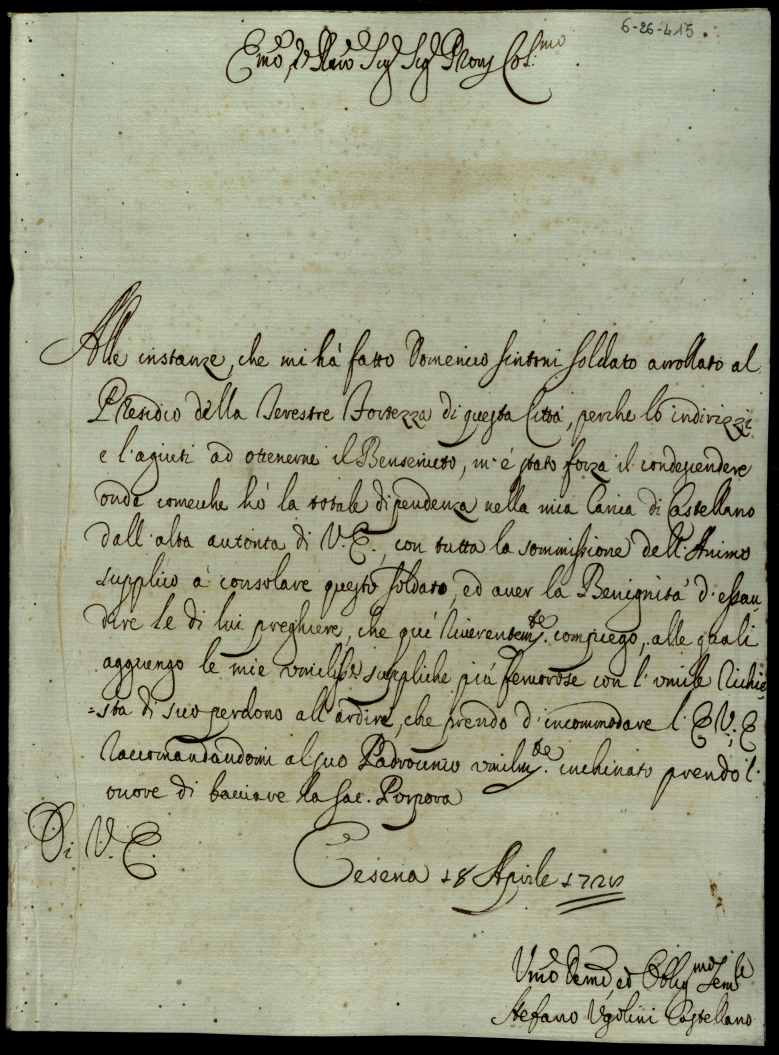 6-26-4.15
Emo, e Rmo Sig Sig Pron Col:mo
Alle instanze, che mi hà fatto Domenico Sintoni Soldato arrollato al
Presidio della Terrestre Fortezza di questa Città, perche lo indirizzi
e l'agiuti ad ottenerne il Benservito, m'è stato forza il condescendere
onde comecche hò la totale dipendenza nella mia Carica di Castellano
dall'alta autorità di V. E., con tutta la sommissione dell'Animo
supplico à consolare questo soldato, ed aver la Benignità d'essau
dire le di lui preghiere, che quì riverentemte. compiego, alle quali
aggiungo le mie umilissme suppliche più femorose con l'umile richie
=sta di suo perdono all'ardire, che prendo d'incommodare l'E. V., E
raccomandandomi al suo Padrocinio umilmte. inchinato prendo l'
onore di bacciare la Sac. Porpora
Di V. E.
Cesena 18 Aprile 172
Umo Demo, ed Obligmo Serre
Stefano Ugolini Castellano